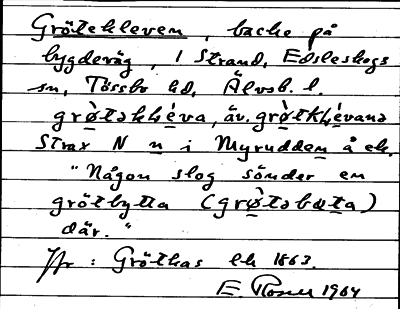 Grötekleven, backe på
bygdeväg, i Strand, Edsleskogs
sn, Tössbo hd, Älvsb. l.
grø̀təkléva, äv. grø̀tkḷévanə
Strax N n i Myrudden å ek.
"Någon slog sönder en
grötbytta (grø̀təbøta)
där."
Jfr: Gröthas lh 1863.
E. Rosell 1964